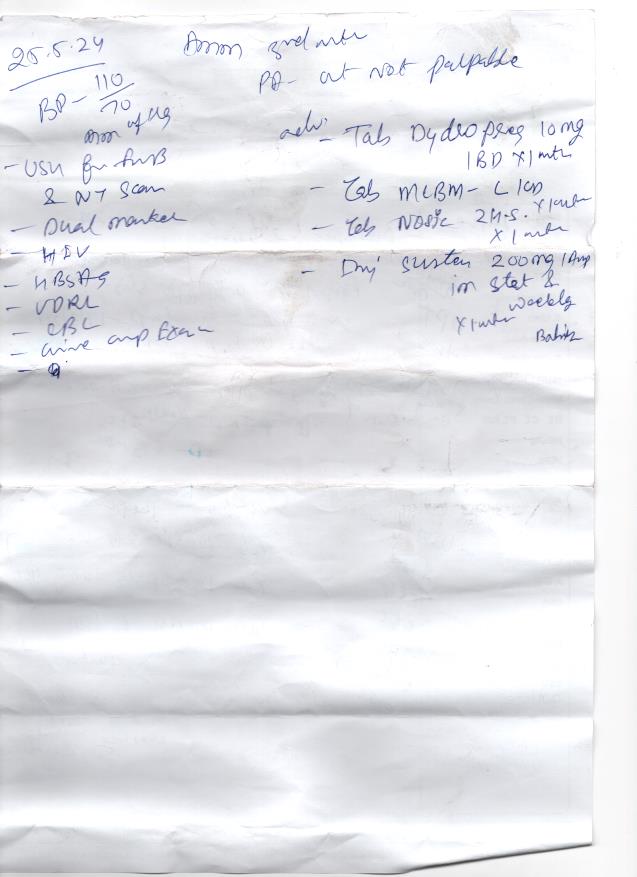 25.5.24
Amm 3rd mth
PA- ut Not palpable
BP- 110/70
mm of Hg
adv:
- USG for FWB
& NT Scan
- Dual marker
- HIV
- HBSAg
- VDRL
- CBC
- Urine Exam
-
- Tab Dydropreg 10mg
1BD X1mth
- Tab MCBM- L 1OD X1mth
- Tab NOSIC 2H.S.
X 1 mth
- Inj Susten 200mg 1Amp
im Stat &
weekly
X1mth